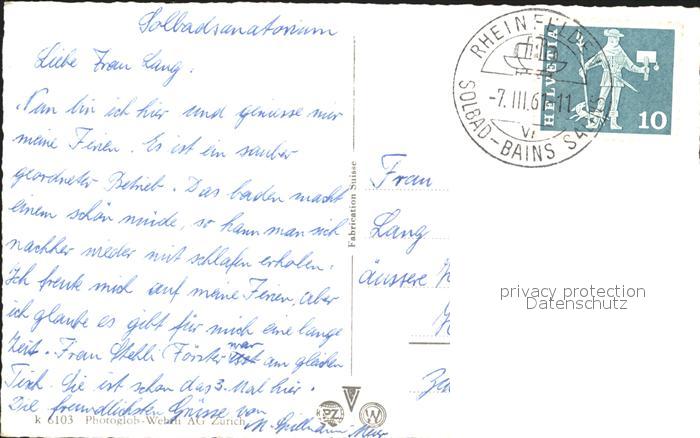 Solbadsanatorium
Liebe Frau Lang.
Nun bin ich hier und geniesse nur
meine Ferien. Es ist ein sauber
geordneter Betrieb. Das baden macht
einem schön müde, so kann man sich
nachher wieder mit schlafen erholen.
Ich freute mich auf meine Ferien, aber
ich glaube es gibt für mich eine lange
Zeit. Frau Stehli Förster war am gleichen
Tisch. Sie ist schon das 3. Mal hier.
Die freundlichsten Grüsse von
M. Spillmann-Meier
k 6103 Photoglob-Wehrli AG Zürich
Fabrication Suisse
PZ
W
RHEINFELDEN
-7.III.61-11
VI
SOLBAD-BAINS SALINS
HELVETIA
10
Frau
Lang
äussere
privacy protection
Datenschutz